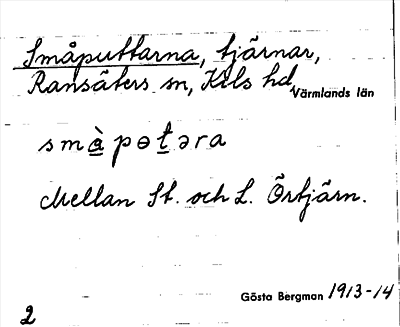 Småputtarna, tjärnar,
Ransäters sn, Kils hd,
Värmlands län
smàpɵt̲əra
Mellan St. och L. Örtjärn.
Gösta Bergman 1913-14
2